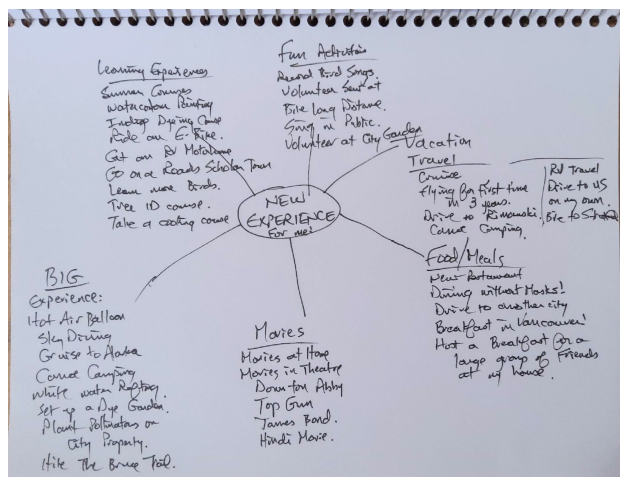 Learning Experiences
Summer Courses
Watercolour Painting
Indigo Dyeing Course
Ride an E-Bike.
Get on RV Motorhome
Go on a Roads Scholar Tour
Learn more Birds.
Tree ID course.
Take a cooking course
Fun Activities
Record Bird Songs.
Volunteer
Bike Long Distance.
Sing in Public.
Volunteer at City Garden
Vacation
Travel
Cruise
flying for first time
in 3 years.
Drive to Rimouski.
Canoe Camping
RV Travel
Drive to US
on my own.
Bike to
NEW
EXPERIENCE
For me!
Food/Meals
New Restaurant
Dining without Masks!
Drive to another city
Breakfast in Vancouver!
Host a Breakfast for a
large group of Friends
at my house.
Movies
Movies at Home
Movies in Theatre
Downton Abby
Top Gun
James Bond.
Hindi Movie.
BIG
Experience:
Hot Air Balloon
Sky Diving
Cruise to Alaska
Canoe Camping
White water Rafting.
Set up a Dye Garden.
Plant Pollinators on
City Property.
Hike The Bruce Trail.